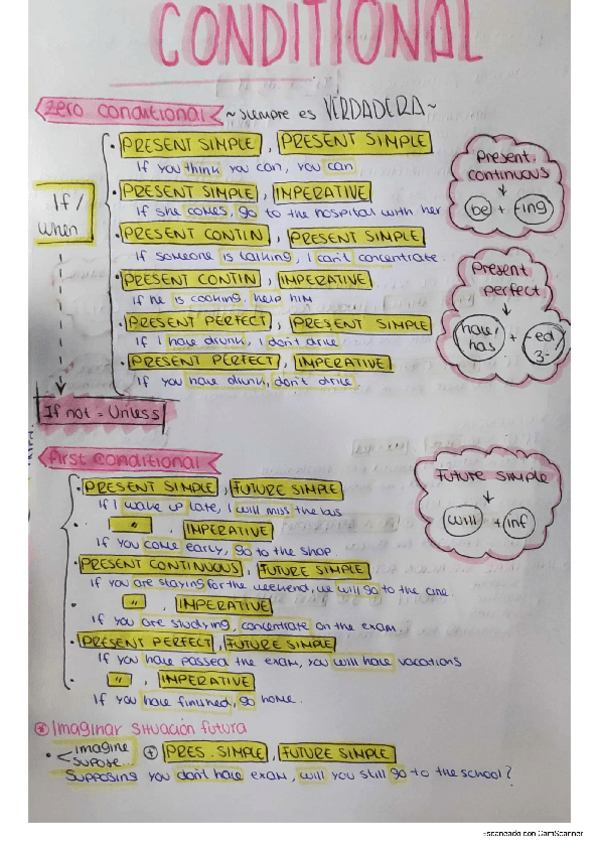 CONDITIONAL
zero conditional ~siempre es VERDADERA~
If / when
· PRESENT SIMPLE , PRESENT SIMPLE
If you think you can, you can
· PRESENT SIMPLE , IMPERATIVE
If she comes, go to the hospital with her
· PRESENT CONTIN , PRESENT SIMPLE
If someone is talking, I can't concentrate.
· PRESENT CONTIN , IMPERATIVE
If he is cooking, help him
· PRESENT PERFECT , PRESENT SIMPLE
If I have drunk, I don't drive
· PRESENT PERFECT , IMPERATIVE
If you have drunk, don't drive
If not = Unless
Present continuous
be + -ing
Present perfect
have/has + -ed 3ª
first conditional
· PRESENT SIMPLE , FUTURE SIMPLE
If I wake up late, I will miss the bus
· " , IMPERATIVE
If you come early, go to the shop.
· PRESENT CONTINUOUS , FUTURE SIMPLE
If you are staying for the weekend, we will go to the cine.
· " , IMPERATIVE
If you are studying, concentrate on the exam.
· PRESENT PERFECT , FUTURE SIMPLE
If you have passed the exam, you will have vacations
· " , IMPERATIVE
If you have finished, go home.
Future simple
will + inf
Imaginar situación futura
· < imagine
supose... + PRES. SIMPLE , FUTURE SIMPLE
Supposing you don't have exam, will you still go to the school?
Escaneado con CamScanner